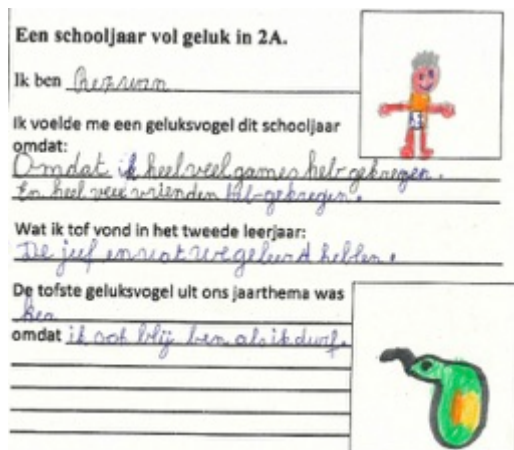 Een schooljaar vol geluk in 2A.
Ik ben Rezwan
Ik voelde me een geluksvogel dit schooljaar
omdat:
Omdat ik heel veel games heb gekregen.
En heel veel vrienden heb gekregen.
Wat ik tof vond in het tweede leerjaar:
De juf en wat we geleerd hebben.
De tofste geluksvogel uit ons jaarthema was
omdat ik ook blij ben als ik durf.